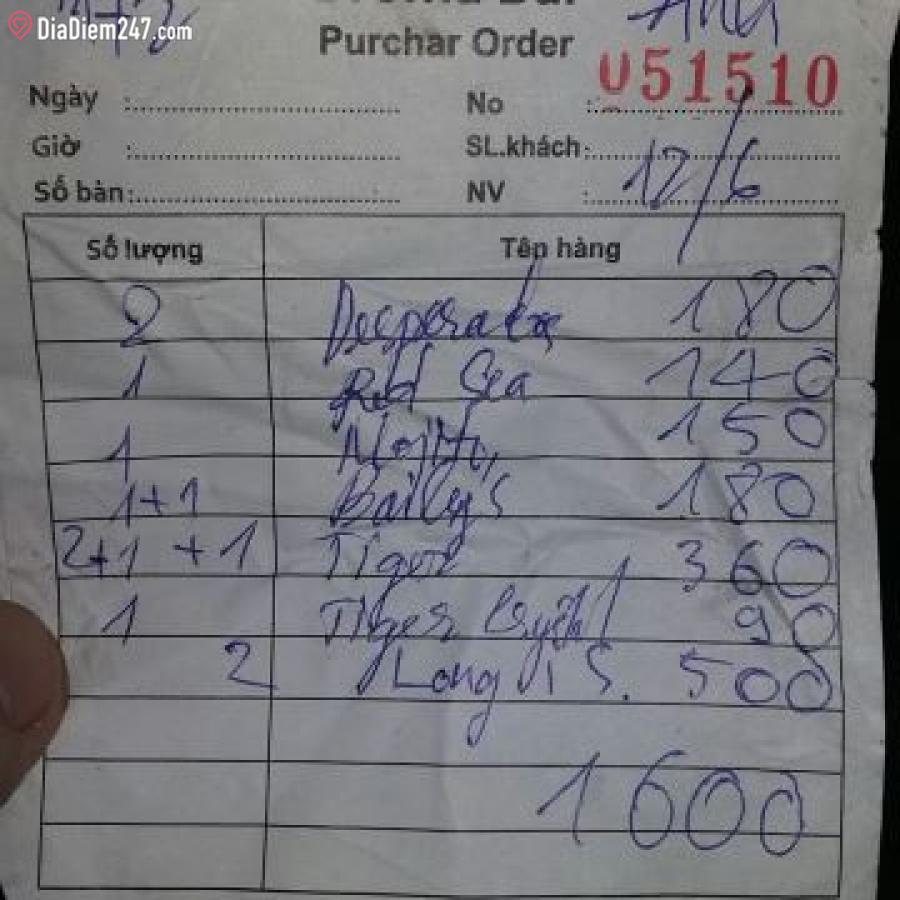 DiaDiem247.com
Purchar Order
Ngày :
No : 051510
Giờ :
SL.khách:
Số bàn:
NV : 12/6
Số lượng Tên hàng
2 Desperados 180
1 Red Sea 140
1 Mojito 150
1+1 Baily's 180
2+1 +1 Tiger 360
1 Tiger 90
2 Long i S. 500
1600